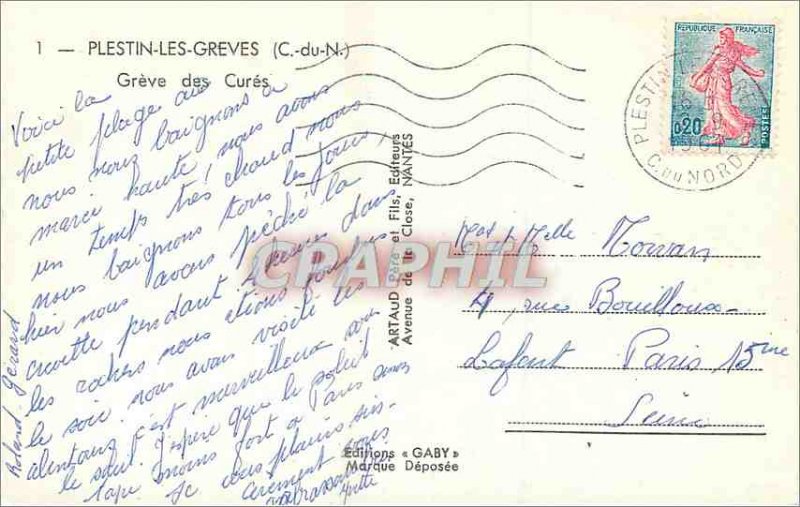 1 — PLESTIN-LES-GREVES (C.-du-N.)
Grève des Curés
Voici la
petite plage où
nous nous baignons à
marée haute, nous avons
un temps très chaud nous
nous baignons tous les jours,
hier nous avons pêché la
crevette pendant heures dans
les rochers nous étions
le soir nous avons visité les
alentours c'est merveilleux
le soleil. J'espère que le soleil
tape moins fort à Paris sinon
je vous plains sin-
cèrement
Roland Gérard
ARTAUD Père et Fils, Editeurs
Avenue de la Close, NANTES
Editions « GABY »
Marque Déposée
REPUBLIQUE FRANÇAISE
0,20
POSTES
PLESTIN
C. DU NORD
CPAPHIL
Melle Morvan
4, rue Bouilloux-
Lafont Paris 15ème
Seine